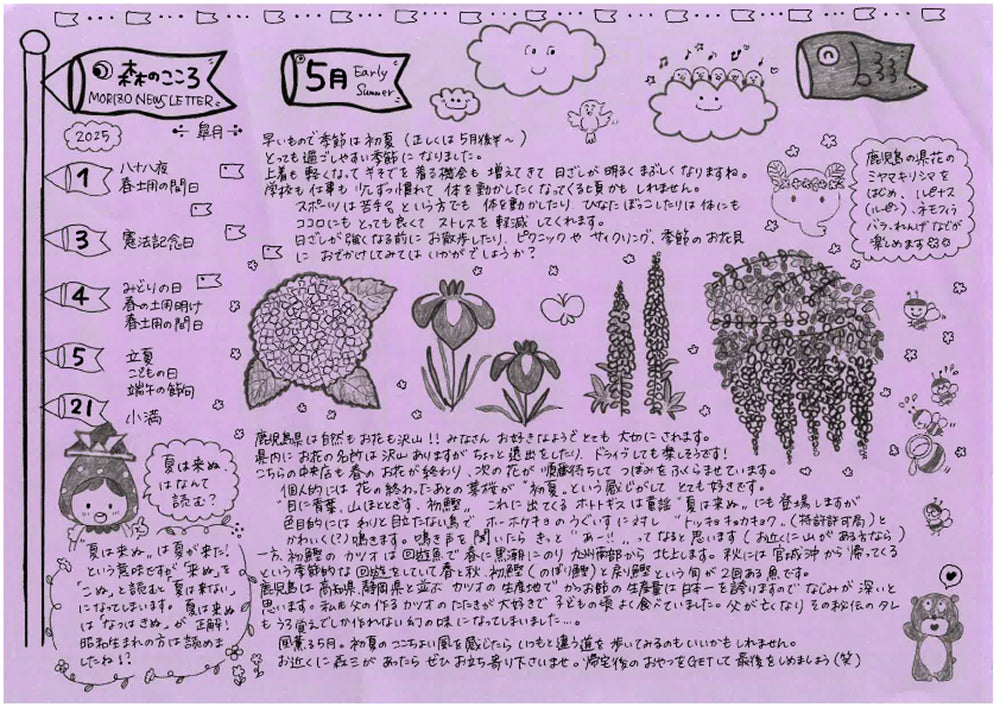 森のこころ
MORIZO NEWSLETTER
5月 Early Summer
2025
皐月
1 八十八夜
春土用の間日
3 憲法記念日
4 みどりの日
春の土用明け
春土用の間日
5 立夏
こどもの日
端午の節句
21 小満
早いもので季節は初夏(正しくは5月後半~)
とっても過ごしやすい季節になりました。
上着も軽くなって半そでを着る機会も増えてきて日ざしが明るくまぶしくなりますね。
学校も仕事も少しずつ慣れて体を動かしたくなってくる頃かもしれません。
スポーツは苦手。という方でも体を動かしたり、ひなたぼっこしたりは体にも
ココロにもとっても良くてストレスを軽減してくれます。
日ざしが強くなる前にお散歩したり、ピクニックやサイクリング、季節のお花見
におでかけしてみてはいかがでしょうか?
鹿児島の県花の
ミヤマキリシマを
はじめ、ルピナス
(ルーピン)、ネモフィラ
バラ、れんげなどが
楽しめます
鹿児島県は自然もお花も沢山!!みなさんお好きなようでとても大切にされます。
県内にお花の名所は沢山ありますがちょっと遠出をしたり、ドライブしても楽しそうです!
こちらの中央店も春のお花が終わり、次の花が順番待ちしてつぼみをふくらませています。
個人的には花の終わったあとの葉桜が〝初夏〟という感じがしてとても好きです。
〝目に青葉、山ほととぎす、初鰹〟これに出てくるホトトギスは童謡〝夏は来ぬ〟にも登場しますが
色目的にはわりと目立たない鳥でホーホケキョのうぐいすに対し〝トッキョキョカキョク〟(特許許可局)と
かわいく(?)鳴きます。鳴き声を聞いたらきっと〝あー!!〟ってなると思います(お近くに山がある方なら)
一方、初鰹のカツオは回遊魚で春に黒潮にのり九州南部から北上します。秋には宮城沖から帰ってくる
という季節的な回遊をしていて春と秋、初鰹(のぼり鰹)と戻り鰹という旬が2回ある魚です。
鹿児島は高知県、静岡県と並ぶカツオの生産地でかつお節の生産量は日本一を誇りますのでなじみが深いと
思います。私も父の作るカツオのたたきが大好きで子どもの頃よく食べていました。父が亡くなりその秘伝のタレ
もうろ覚えでしか作れない幻の味になってしまいました…。
風薫る5月。初夏のここちよい風を感じたらいつもと違う道を歩いてみるのもいいかもしれません。
お近くに森三があったらぜひお立ち寄り下さいませ。帰宅後のおやつをGETして最後をしめましょう(笑)
夏は来ぬ
はなんて
読む?
〝夏は来ぬ〟は夏が来た!
という意味ですが〝来ぬ〟を
〝こぬ〟と読むと夏は来ない
になってしまいます。夏は来ぬ
は〝なつはきぬ〟が正解!
昭和生まれの方は読めま
したね!?